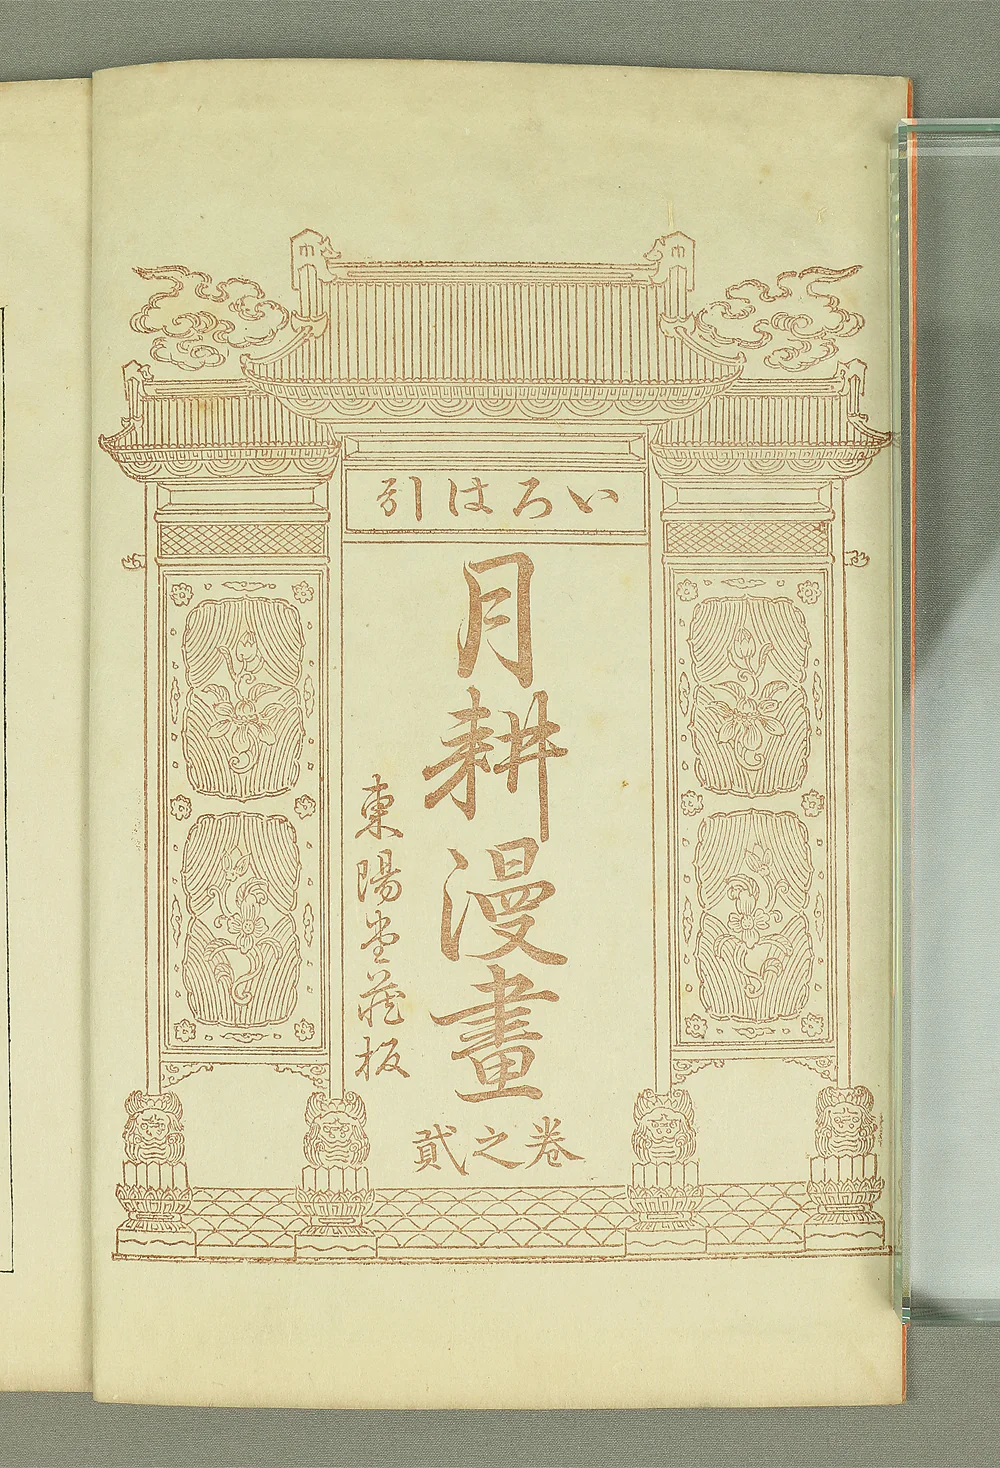 いろは引
月耕漫畫
卷之貳
東陽堂蔵板